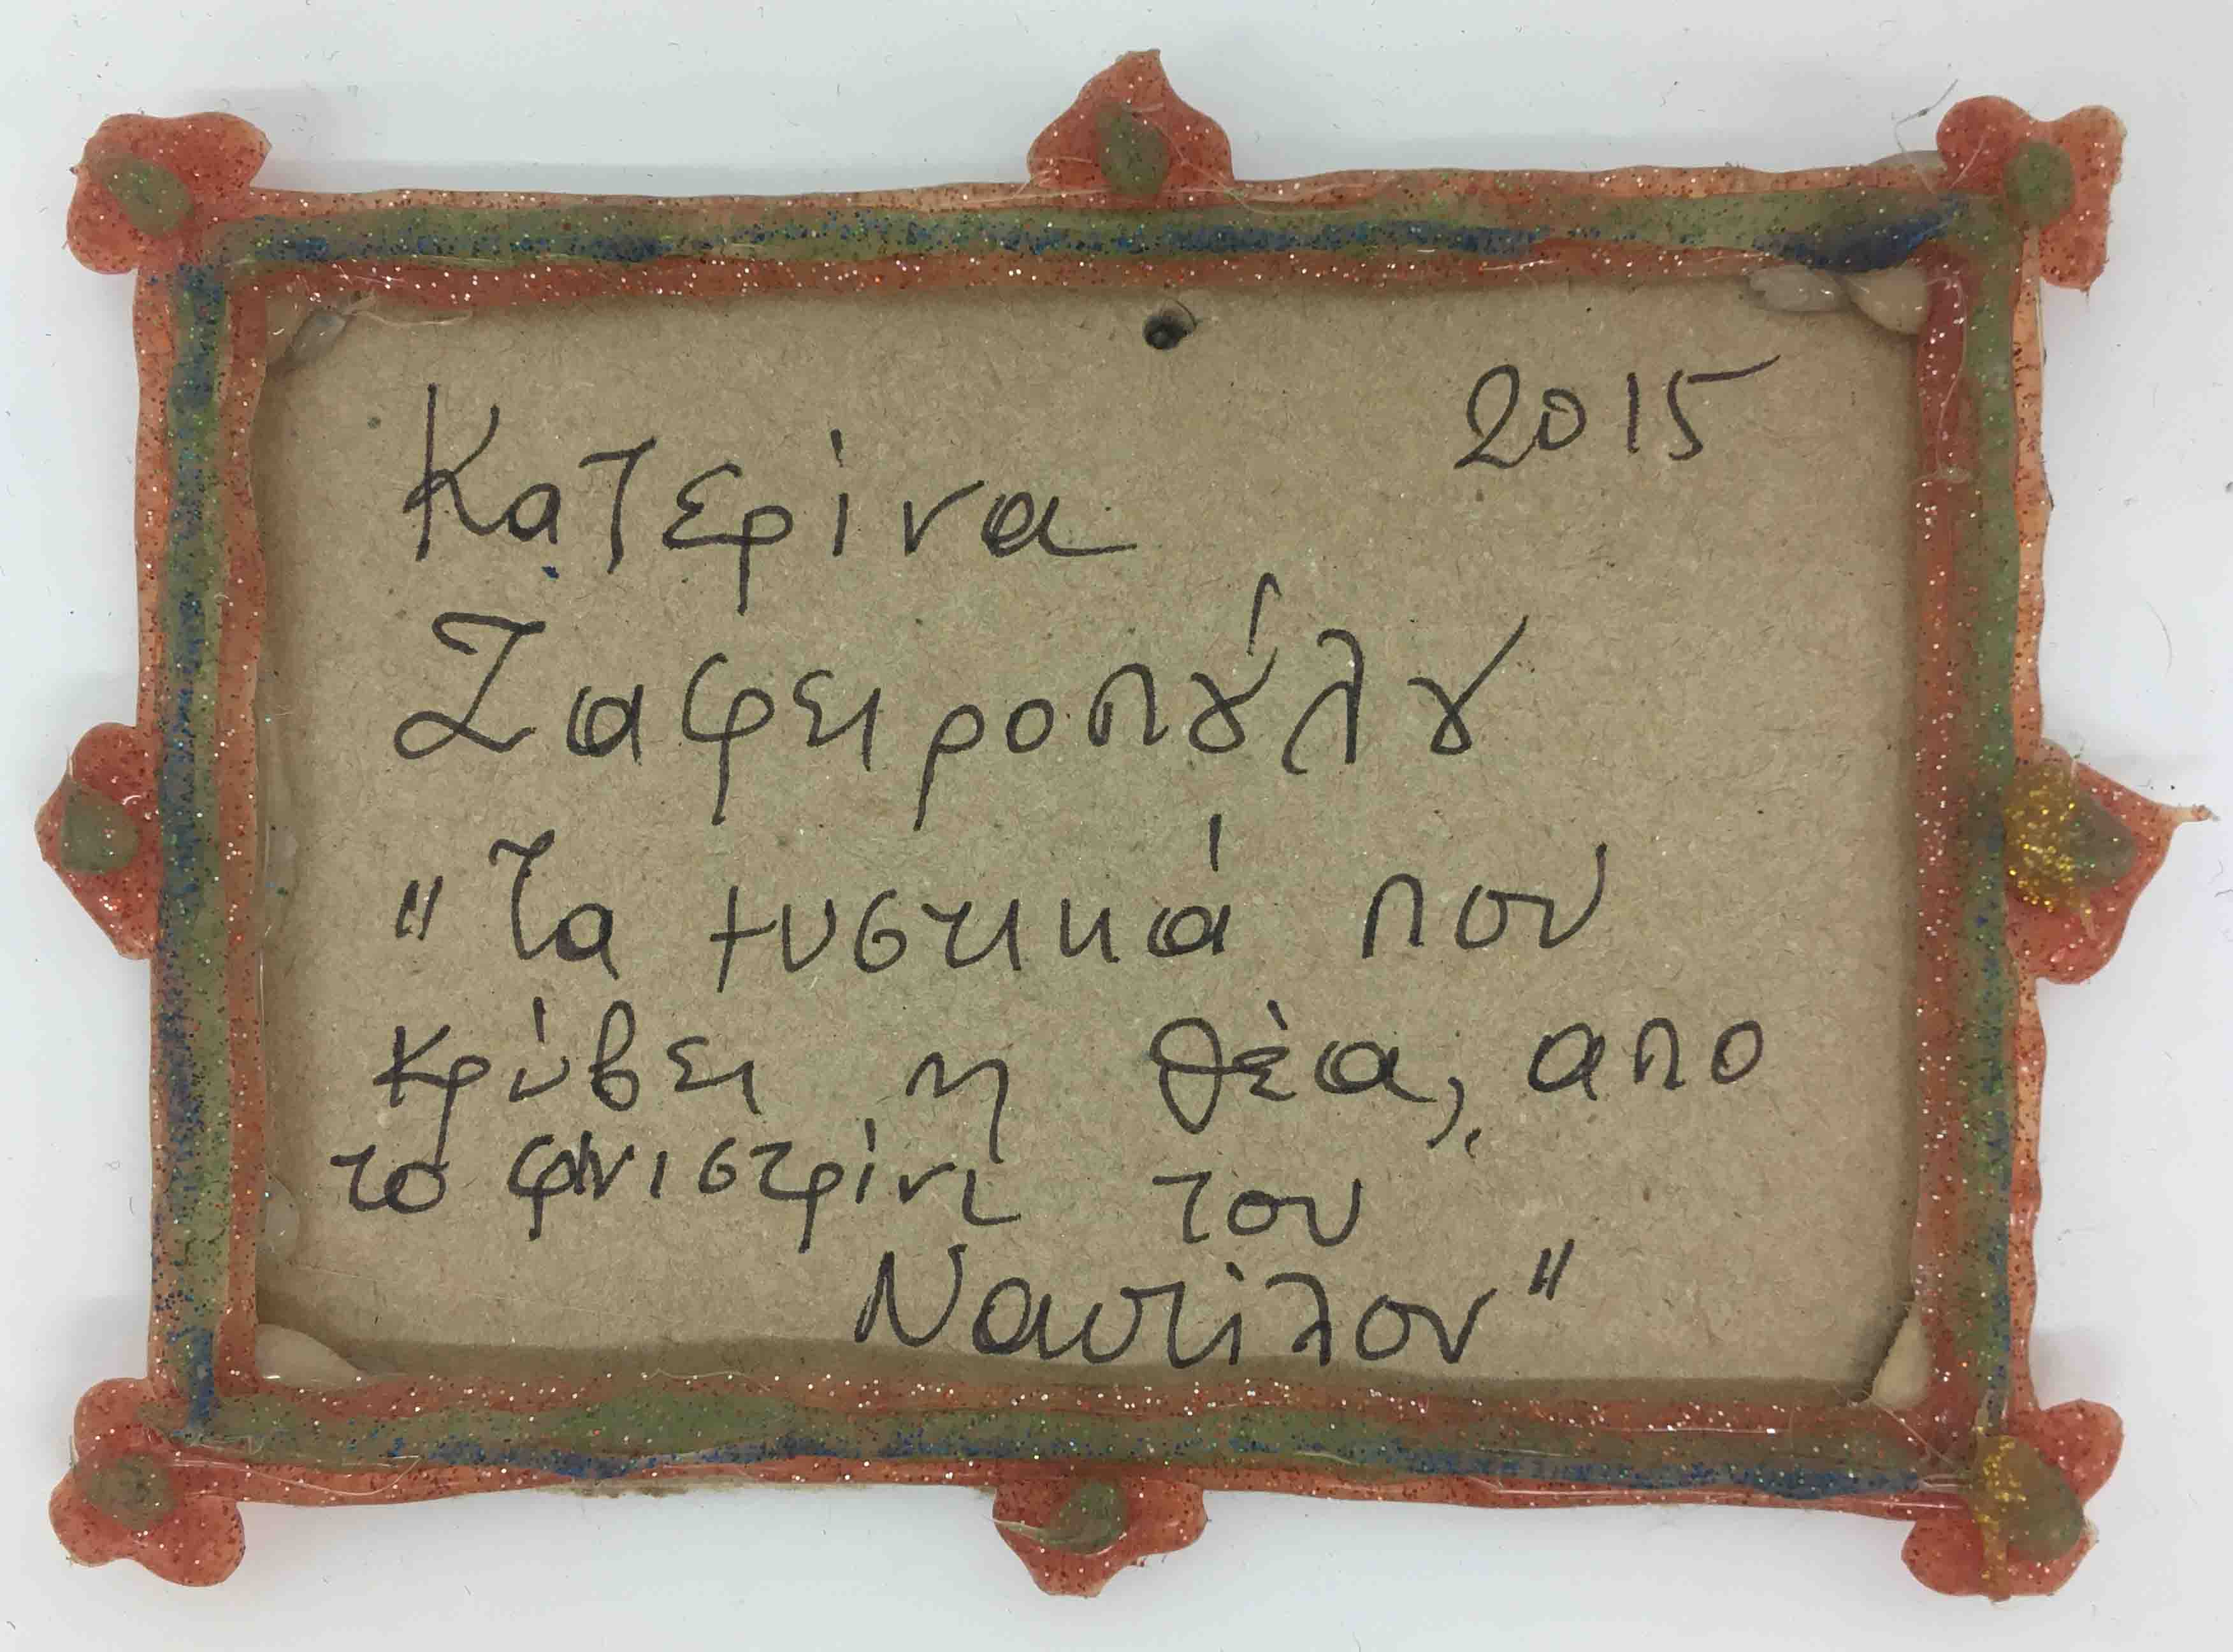 Κατερίνα 2015
Ζαφειροπούλου
"Τα μυστικά που
κρύβει η θέα, απο
το φινιστρίνι του
Ναυτίλου"